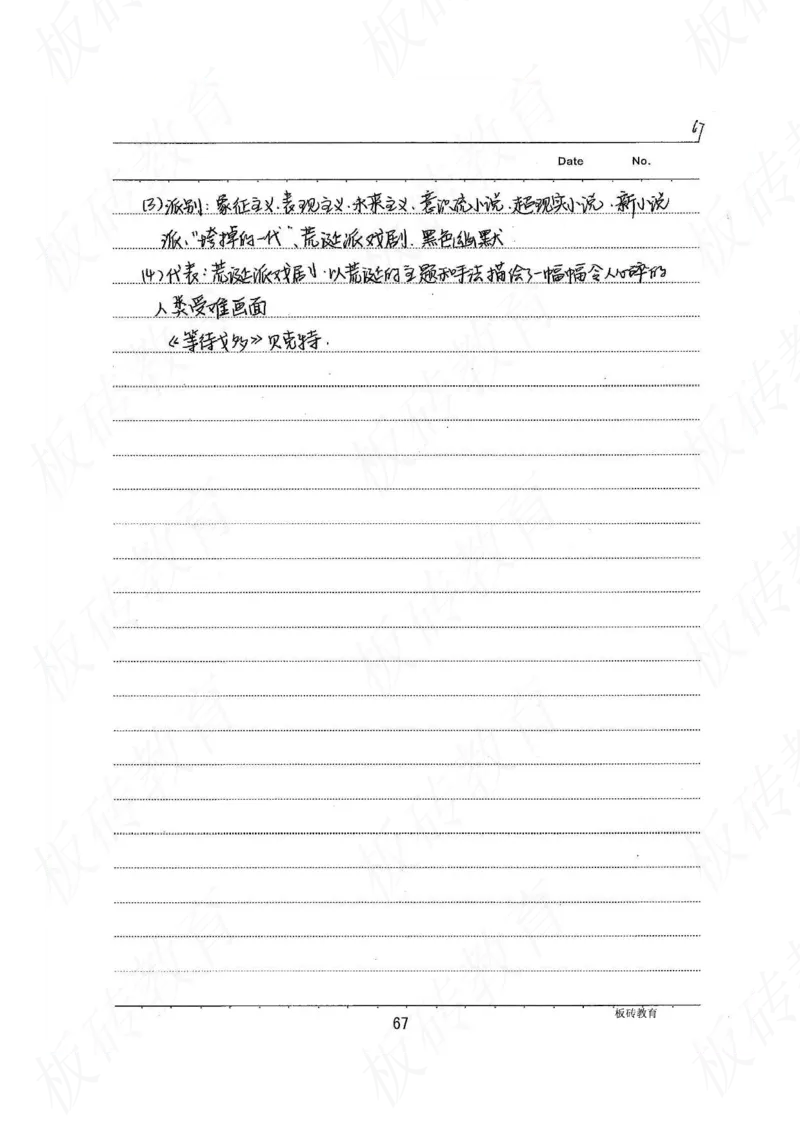 67
Date No.
(3)派别：象征主义、表现主义、未来主义、意识流小说、超现实小说、新小说
派、"垮掉的一代"、荒诞派戏剧、黑色幽默
(4)代表：荒诞派戏剧，以荒诞的主题和手法描绘了一幅幅令人心碎的
人类受难画面
《等待戈多》贝克特.
67
板砖教育